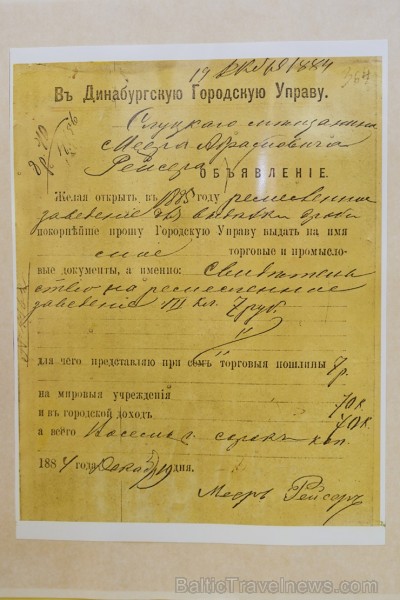 19 Декбря 1884
Въ Динабургскую Городскую Управу.
Слуцкаго мещанина
Меера Абрамовича
Рейсера
ОБЪЯВЛЕНІЕ.
Желая открыть въ 1885 году ремесленное
заведеніе для выливки дроби
покорнѣйше прошу Городскую Управу выдать на имя
мое торговые и промысло-
вые документы, а именно: Свидѣтель
ство на ремесленное
заведеніе VII кл. 7 руб.
для чего представляю при семъ торговыя пошлины 7 р.
на мировыя учрежденія 70 к.
и въ городской доходъ. 70 к.
а всего Восемь р. сорокъ коп.
1884 года Декаб 19 дня.
Мееръ Рейсеръ
BalticTravelnews.com